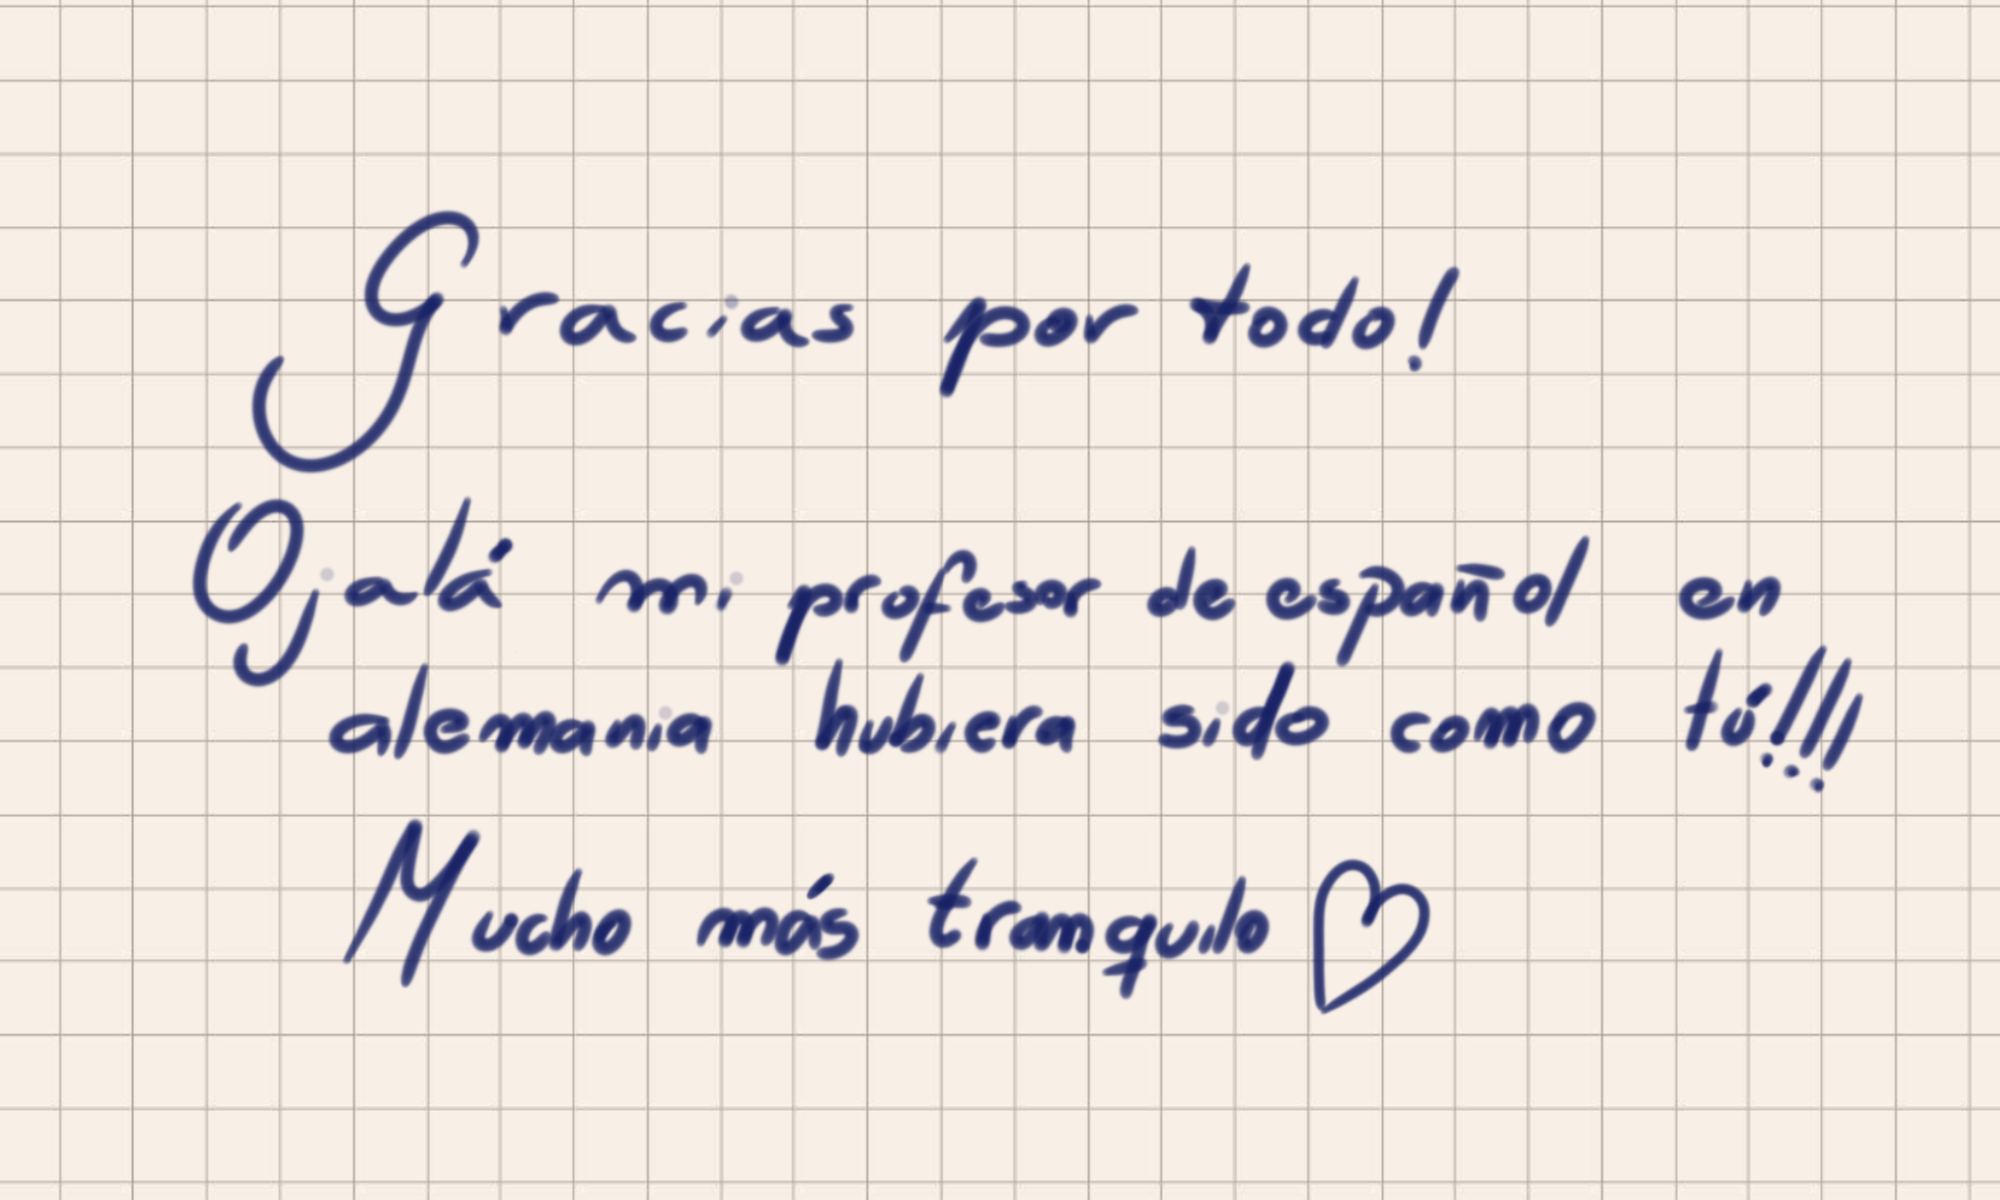 Gracias por todo!
Ojalá mi profesor de español en
alemania hubiera sido como tú!!!
Mucho más tranquilo